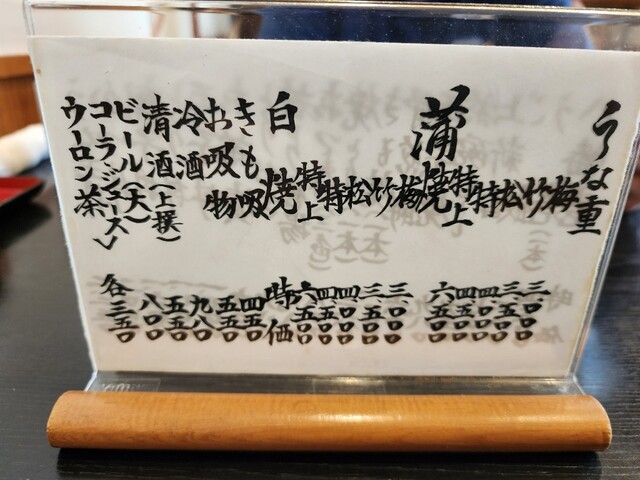 うな重
梅 三、〇〇〇
竹 三、五〇〇
松 四、〇〇〇
特 四、五〇〇
特上 六、五〇〇
蒲焼
梅 三、〇〇〇
竹 三、五〇〇
松 四、〇〇〇
特 四、五〇〇
特上 六、五〇〇
白焼 時価
きも吸 四五〇
お吸物 五五〇
冷酒 九八〇
清酒(上撰) 五五〇
ビール(大) 八〇〇
コーラ(ジュース)
ウーロン茶 各三五〇